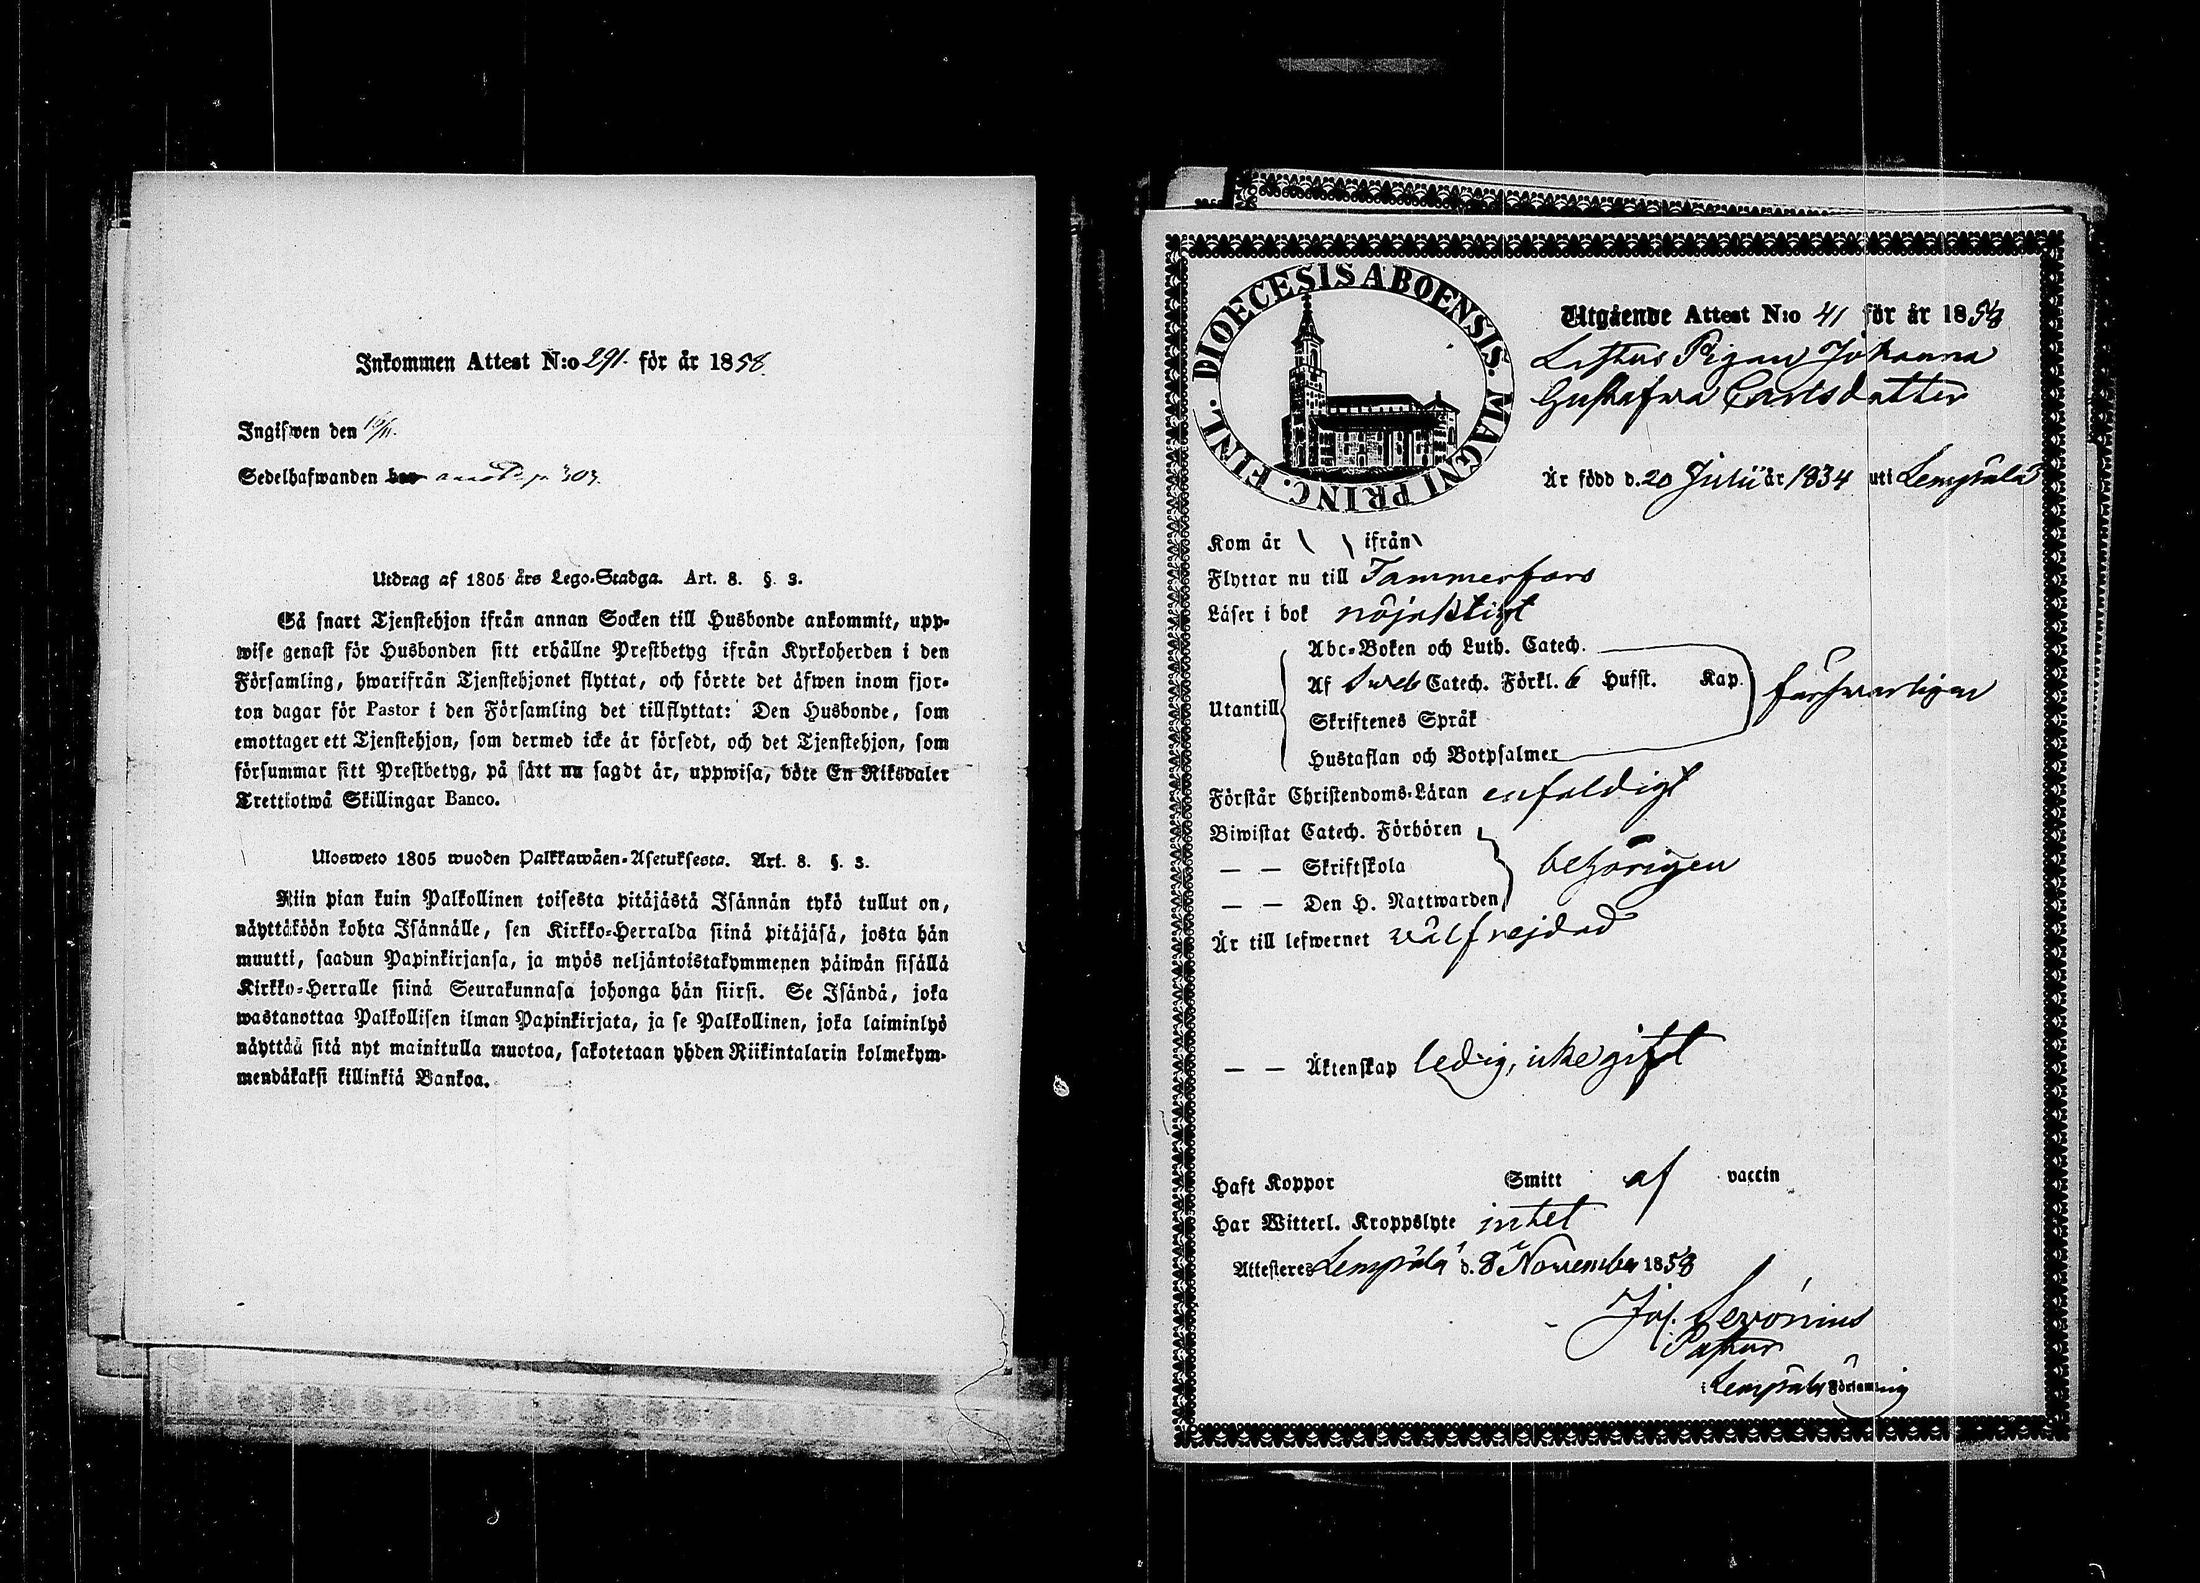 Inkommen Attest N:o 291. för år 1858.
Ingifwen den 15/11.
Sedelhafwanden bor annot. p. 303.
Utdrag af 1805 års Lego-Stadga. Art. 8. §. 3.
Så snart Tjenstehjon ifrån annan Socken till Husbonde ankommit, upp-
wise genast för Husbonden sitt erhållne Prestbetyg ifrån Kyrkoherden i den
Församling, hwarifrån Tjenstehjonet flyttat, och förete det äfwen inom fjor-
ton dagar för Pastor i den Församling det tillflyttat: Den Husbonde, som
emottager ett Tjenstehjon, som dermed icke är försedt, och det Tjenstehjon, som
försummar sitt Prestbetyg, på sätt nu sagdt är, uppwisa, böte En Riksdaler
Trettiotwå Skillingar Banco.
Ulosweto 1805 wuoden Palkkawäen-Asetuksesta. Art. 8. §. 3.
Niin pian kuin Palkollinen toisesta pitäjästä Isännän tykö tullut on,
näyttäköön kohta Isännälle, sen Kirkko-Herralda siinä pitäjäsä, josta hän
muutti, saadun Papinkirjansa, ja myös neljäntoistakymmenen päiwän sisällä
Kirkko-Herralle siinä Seurakunnasa johonga hän siirsi. Se Isändä, joka
wastanottaa Palkollisen ilman Papinkirjata, ja se Palkollinen, joka laiminlyö
näyttää sitä nyt mainitulla muotoa, sakotetaan yhden Riikintalarin kolmekym-
mendäkaksi killinkiä Bankoa.
DIOECESIS ABOENSIS. MAGNI PRINC. FINL.
Utgående Attest N:o 41 för år 1858
Pigan Johanna
Gustafwa Carlsdotter
Är född d. 20 Julii år 1834 uti Lempälä
Kom år ifrån
Flyttar nu till Tammerfors
Läser i bok nöjaktigt
Utantill
Abc-Boken och Luth. Catech.
Af Sweb Catech. Förkl. 6 Hufst. Kap.
Skriftenes Språk
Hustaflan och Botpsalmer
försvarligen
Förstår Christendoms-Läran enfaldigt
Biwistat Catech. Förhören
— — Skriftskola
— — Den H. Nattwarden
behörigen
Är till lefwernet välfrejdad
— — Äktenskap ledig, icke gift
Haft Koppor Smitt af vaccin
Har Witterl. Kroppslyte intet
Attesteres Lempälä d. 8 November 1858
Jos. Serónius
Pastor
i Lempälä Församling